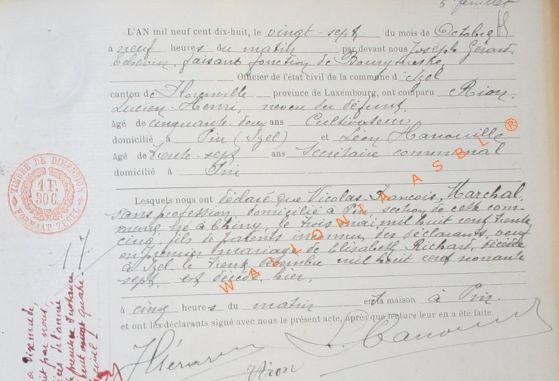 5 feuillet
L'AN mil neuf cent dix-huit, le vingt-sept du mois de Octobre
à neuf heures du matin par devant nous Joseph Gérard,
Echevin, faisant fonction de Bourgmestre,
Officier de l'état civil de la commune d'Izel
canton de Florenville province de Luxembourg, ont comparu Rion,
Lucien Henri, neveu du défunt,
âgé de cinquante deux ans Cultivateur
domicilié à Pin (Izel) et Léon Hanouille
âgé de trente-sept ans Secrétaire communal
domicilié à Pin
TIMBRE DE DIMENSION
1 F.
50C.
FORMAT PETIT
Lesquels nous ont déclaré que Nicolas-François, Marchal,
sans profession, domicilié à Pin, section de cette com-
mune, né à Chiny, le trois mai mil huit cent trente
cinq, fils de parents inconnus des déclarants, veuf
en premier mariage de Elisabeth Richard, décédée
à Izel, le trente décembre mil huit cent nonante
sept, est décédé hier,
à cinq heures du matin en sa maison à Pin
et ont les déclarants signé avec nous le présent acte, après que lecture leur en a été faite.
17
WALLONIA ASBL ®
Rion